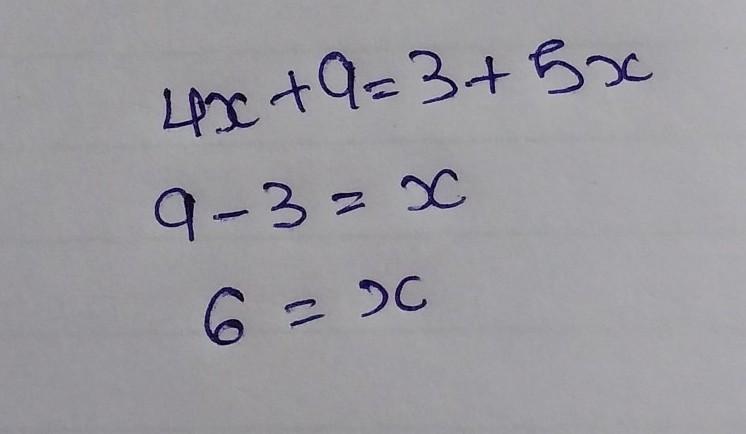 4x + 9 = 3 + 5x
9 - 3 = x
6 = x